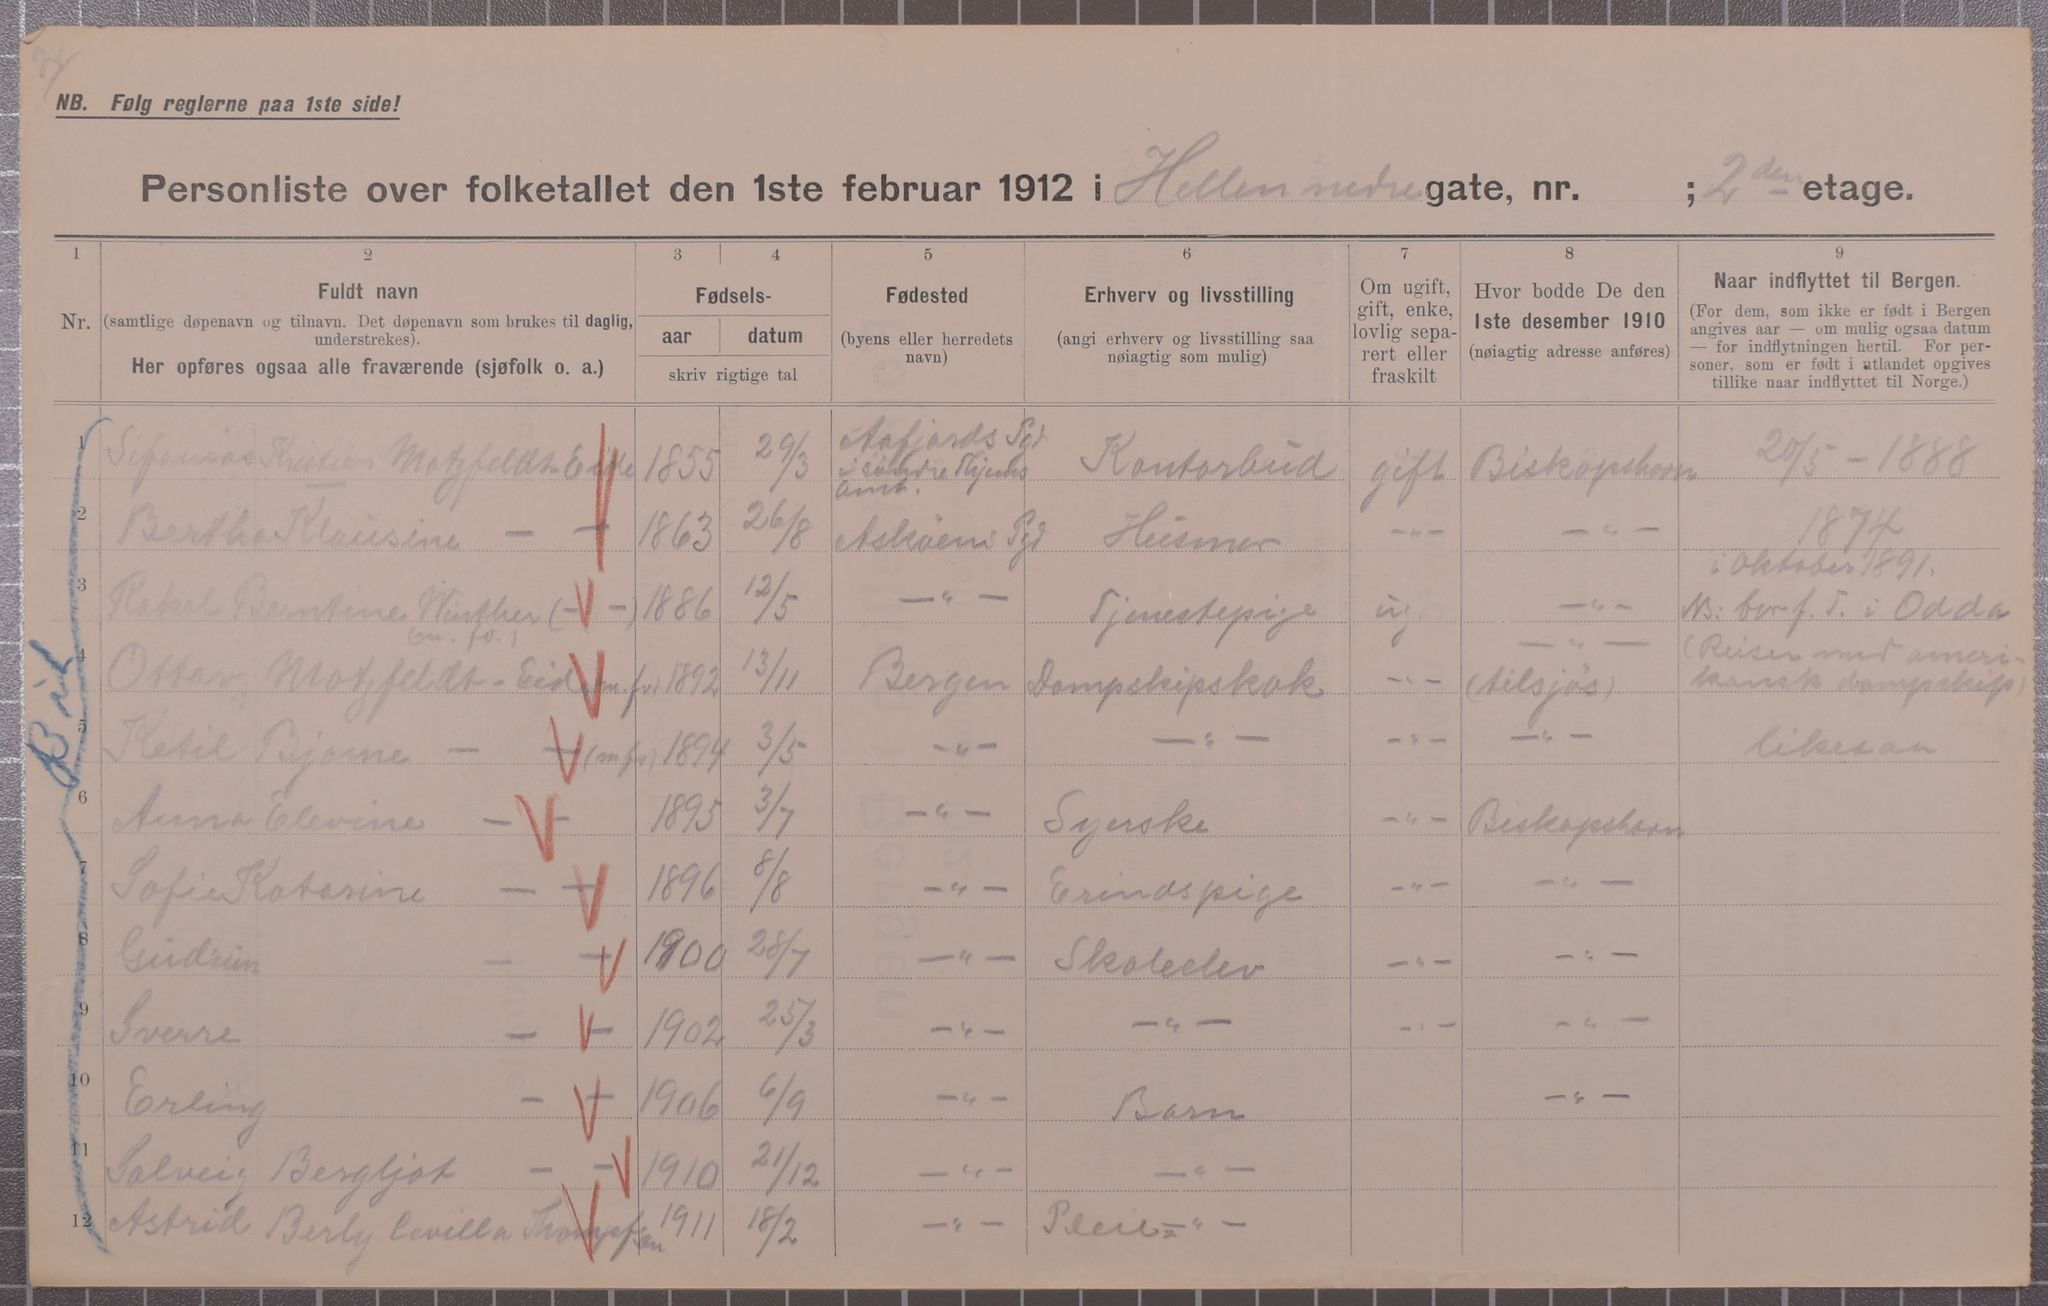 NB. Følg reglerne paa 1ste side!
Personliste over folketallet den 1ste februar 1912 i Hellen nedre gate, nr. ; 2den etage.
1 2 3 4 5 6 7 8 9
Nr.
Fuldt navn
(samtlige døpenavn og tilnavn. Det døpenavn som brukes til daglig, understrekes).
Her opføres ogsaa alle fraværende (sjøfolk o. a.)
Fødsels-
aar datum
skriv rigtige tal
Fødested
(byens eller herredets navn)
Erhverv og livsstilling
(angi erhverv og livsstilling saa nøiagtig som mulig)
Om ugift, gift, enke, lovlig separert eller fraskilt
Hvor bodde De den 1ste desember 1910
(nøiagtig adresse anføres)
Naar indflyttet til Bergen.
(For dem, som ikke er født i Bergen angives aar — om mulig ogsaa datum — for indflytningen hertil. For personer, som er født i utlandet opgives tillike naar indflyttet til Norge.)
Bil
1 Kristian Motzfeldt-Eide 1855 29/3 Aafjords Pgd Søndre Thjems amt. Kontorbud gift Biskopshavn 20/5 - 1888
2 Bertha Klausine — — 1863 26/8 Askøens Pgd Husmor -"- -"- 1874
3 Rakel Bentine Winther (- -) (m. fv.) 1886 12/5 -"- Tjenestepige ug. -"- i Oktober 1891. NB: bor f. T. i Odda
4 Ottar Motzfeldt-Eide (m. fv.) 1892 13/11 Bergen Dampskipskok -"- -"- (tilsjøs) (Reiser med amerikansk dampskip)
5 Ketil Bjarne — — (m. fv.) 1894 3/5 -"- -"- -"- -"- likesaa
6 Anna Elevine — — 1895 3/7 -"- Syerske -"- Biskopshavn
7 Sofie Katarine — — 1896 8/8 -"- Erindspige -"- -"-
8 Gudrun — — 1900 28/7 -"- Skoleelev -"- -"-
9 Sverre — — 1902 25/3 -"- -"- -"- -"-
10 Erling — — 1906 6/9 -"- Barn -"-
11 Solveig Bergljot — — 1910 21/12 -"- -"-
12 Astrid Berly Cevilla Thompsen 1911 18/2 -"- Pleie -"-